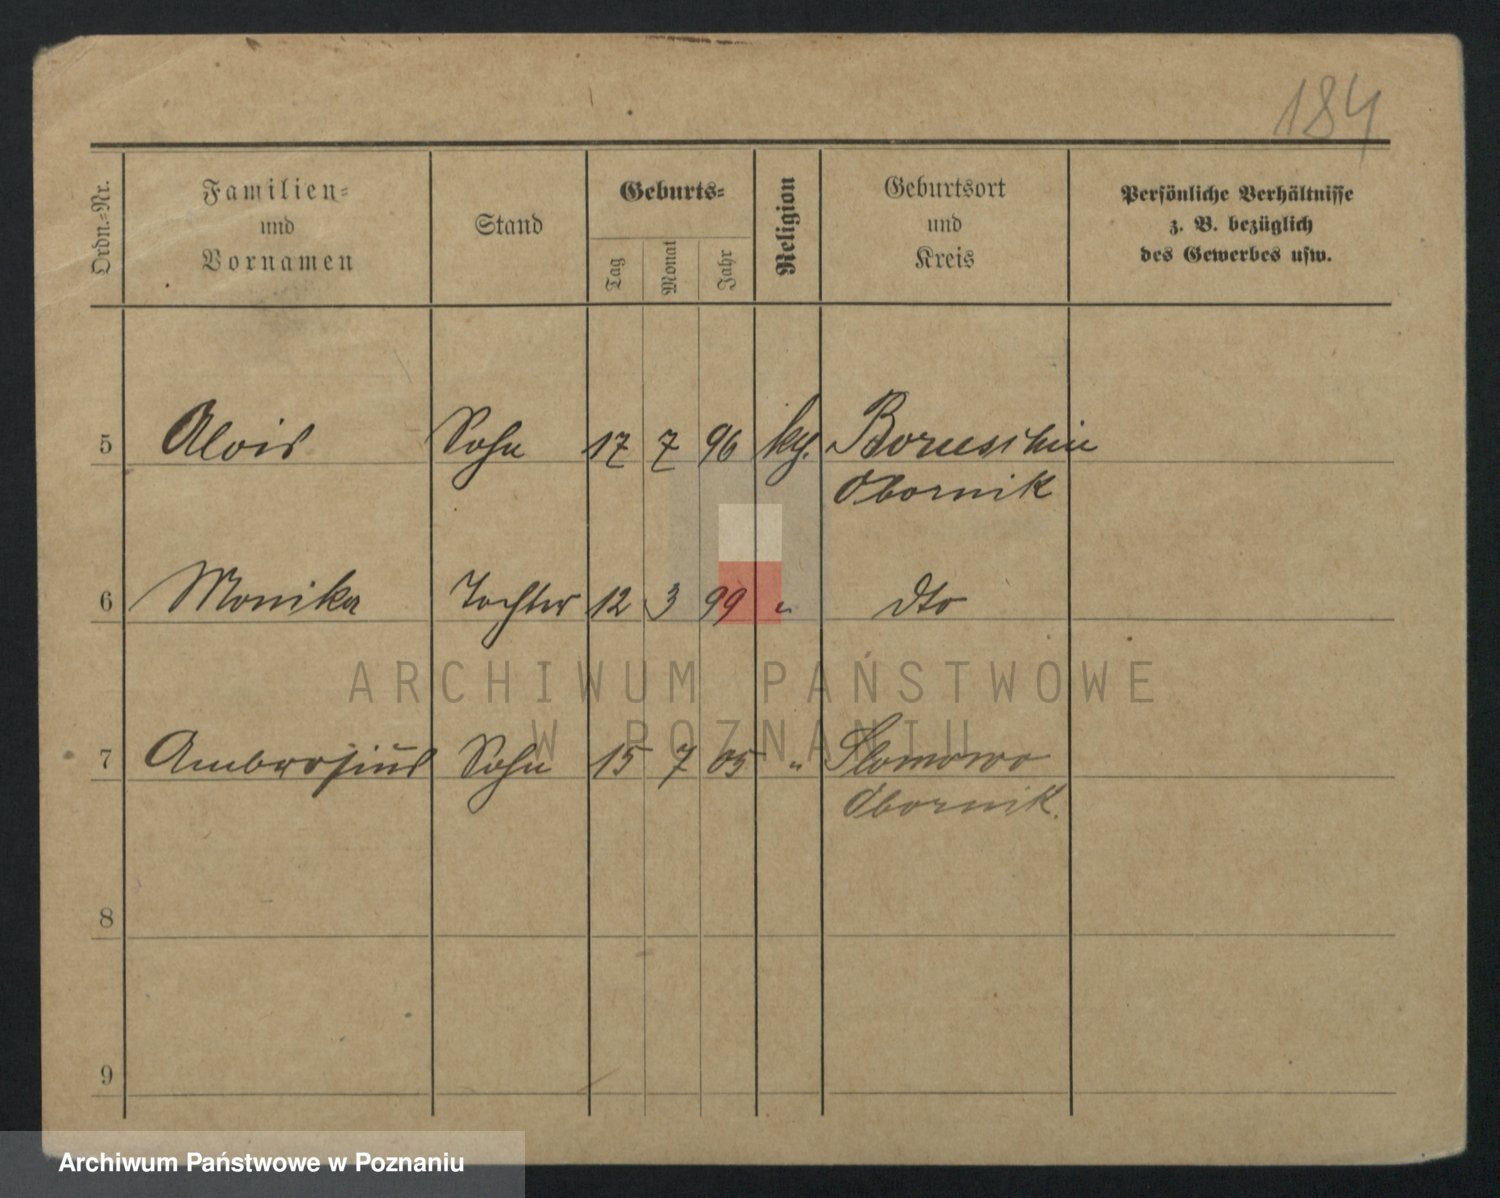 184
Ordn.-Nr.
Familien-
und
Vornamen
Stand
Geburts-
Tag
Monat
Jahr
Religion
Geburtsort
und
Kreis
Persönliche Verhältnisse
z. B. bezüglich
des Gewerbes usw.
5 Alois Sohn 17 7 96 kg. Boruschin
Obornik
6 Monika Tochter 12 3 99 " dto
ARCHIWUM PAŃSTWOWE
W POZNANIU
7 Ambrosius Sohn 15 7 05 " Slomowo
Obornik.
8
9
Archiwum Państwowe w Poznaniu